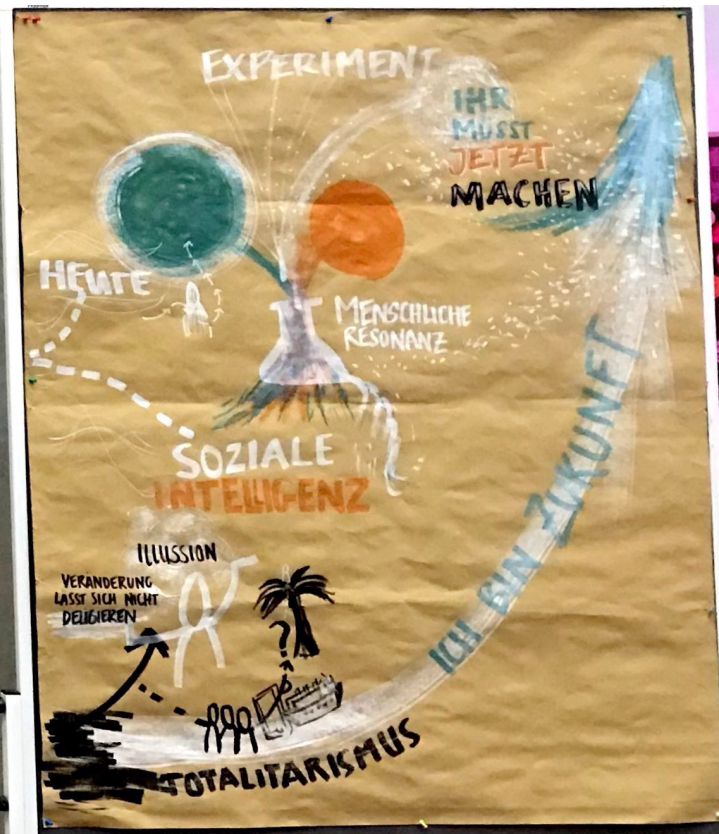 EXPERIMENT
IHR
MÜSST
JETZT
MACHEN
HEUTE
MENSCHLICHE
RESONANZ
SOZIALE
INTELLIGENZ
ICH BIN ZUKUNFT
ILLUSSION
VERÄNDERUNG
LÄSST SICH NICHT
DELIGIEREN
?
TOTALITARISMUS